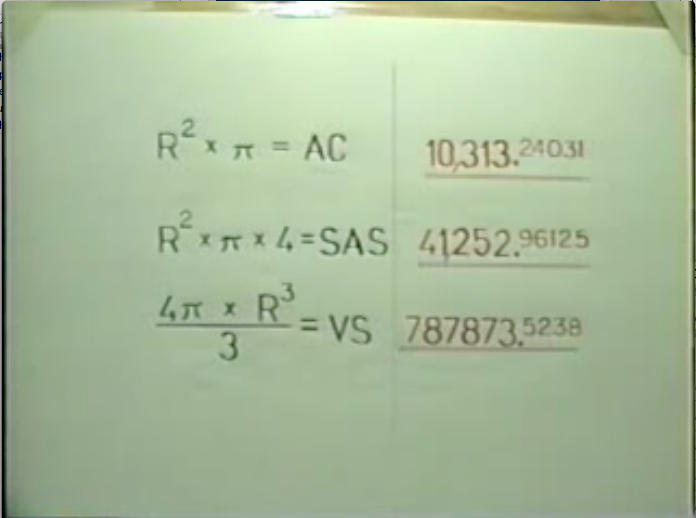 R² × π = AC 10,313.24031
R² × π × 4 = SAS 41,252.96125
4π × R³ / 3 = VS 787873.5238